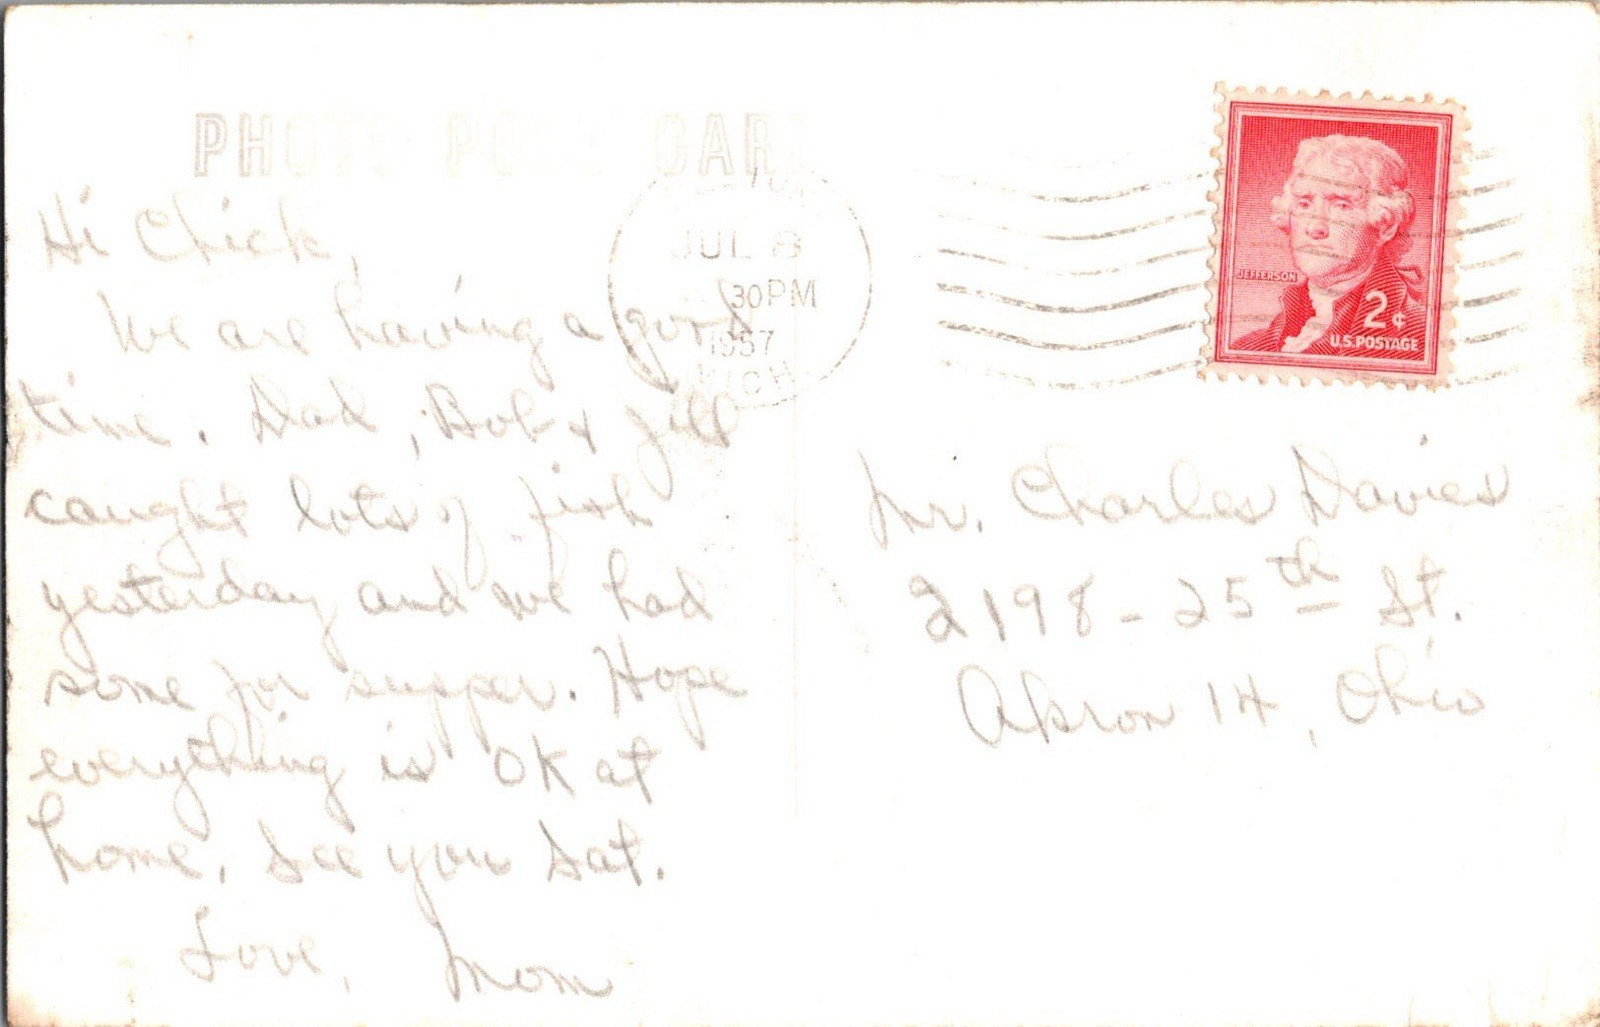 PHOTO POST CARD
Hi Chick,
We are having a good
time. Dad, Bob & Jill
caught lots of fish
yesterday and we had
some for supper. Hope
everything is OK at
home. See you Sat.
Love, Mom
JUL 8
30 PM
1957
MICH
JEFFERSON
2¢
U.S. POSTAGE
Mr. Charles Davies
2198 - 25th St.
Akron 14, Ohio